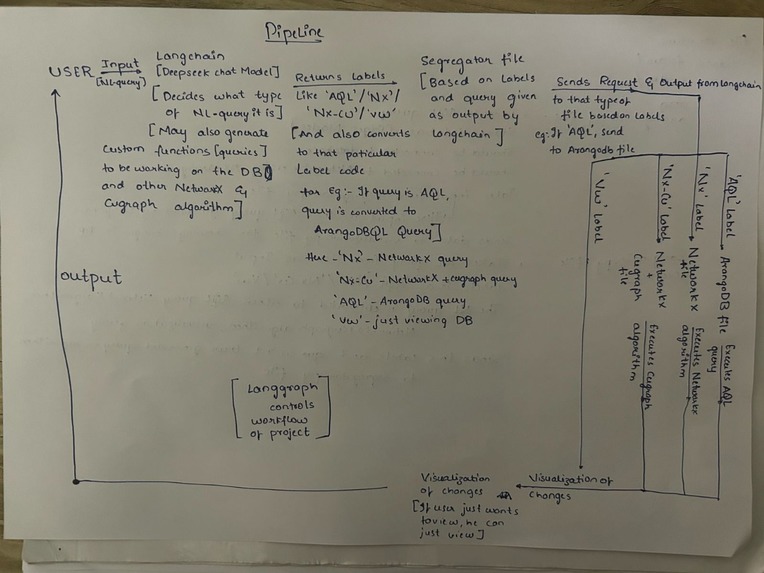 Pipeline
USER
Input
[NL-query]
Langchain
[Deepseek chat Model]
[Decides what type
of NL-query it is]
[May also generate
Custom functions [queries]
to be working on the DB
and other NetworkX &
Cugraph algorithm]
Returns Labels
Like 'AQL'/'Nx'/
'Nx-Cu'/'vw'
[And also converts
to that paticular
Label code
for eg:- If query is AQL,
query is converted to
ArangoDBQL Query]
Here - 'Nx' - NetworkX query
'Nx-Cu' - NetworkX + cugraph query
'AQL' - ArangoDB query
'vw' - just viewing DB
Segregator file
[Based on Labels
and query given
as output by
Longchain]
Sends Request & Output from Longchain
to that type of
file based on labels
eg: If 'AQL', send
to Arangodb file
'Vw' Label
'Nx-Cu' Label
Networkx
+
Cugraph
file
Executes Cugraph
algorithm
'Nx' Label
Networkx
file
Executes Networkx
algorithm
'AQL' Label
ArangoDB file
Executes AQL
query
output
[Langgraph
controls
workflow
of project]
Visualization
of changes
[If user just wants
to view, he can
just view]
Visualization of
changes